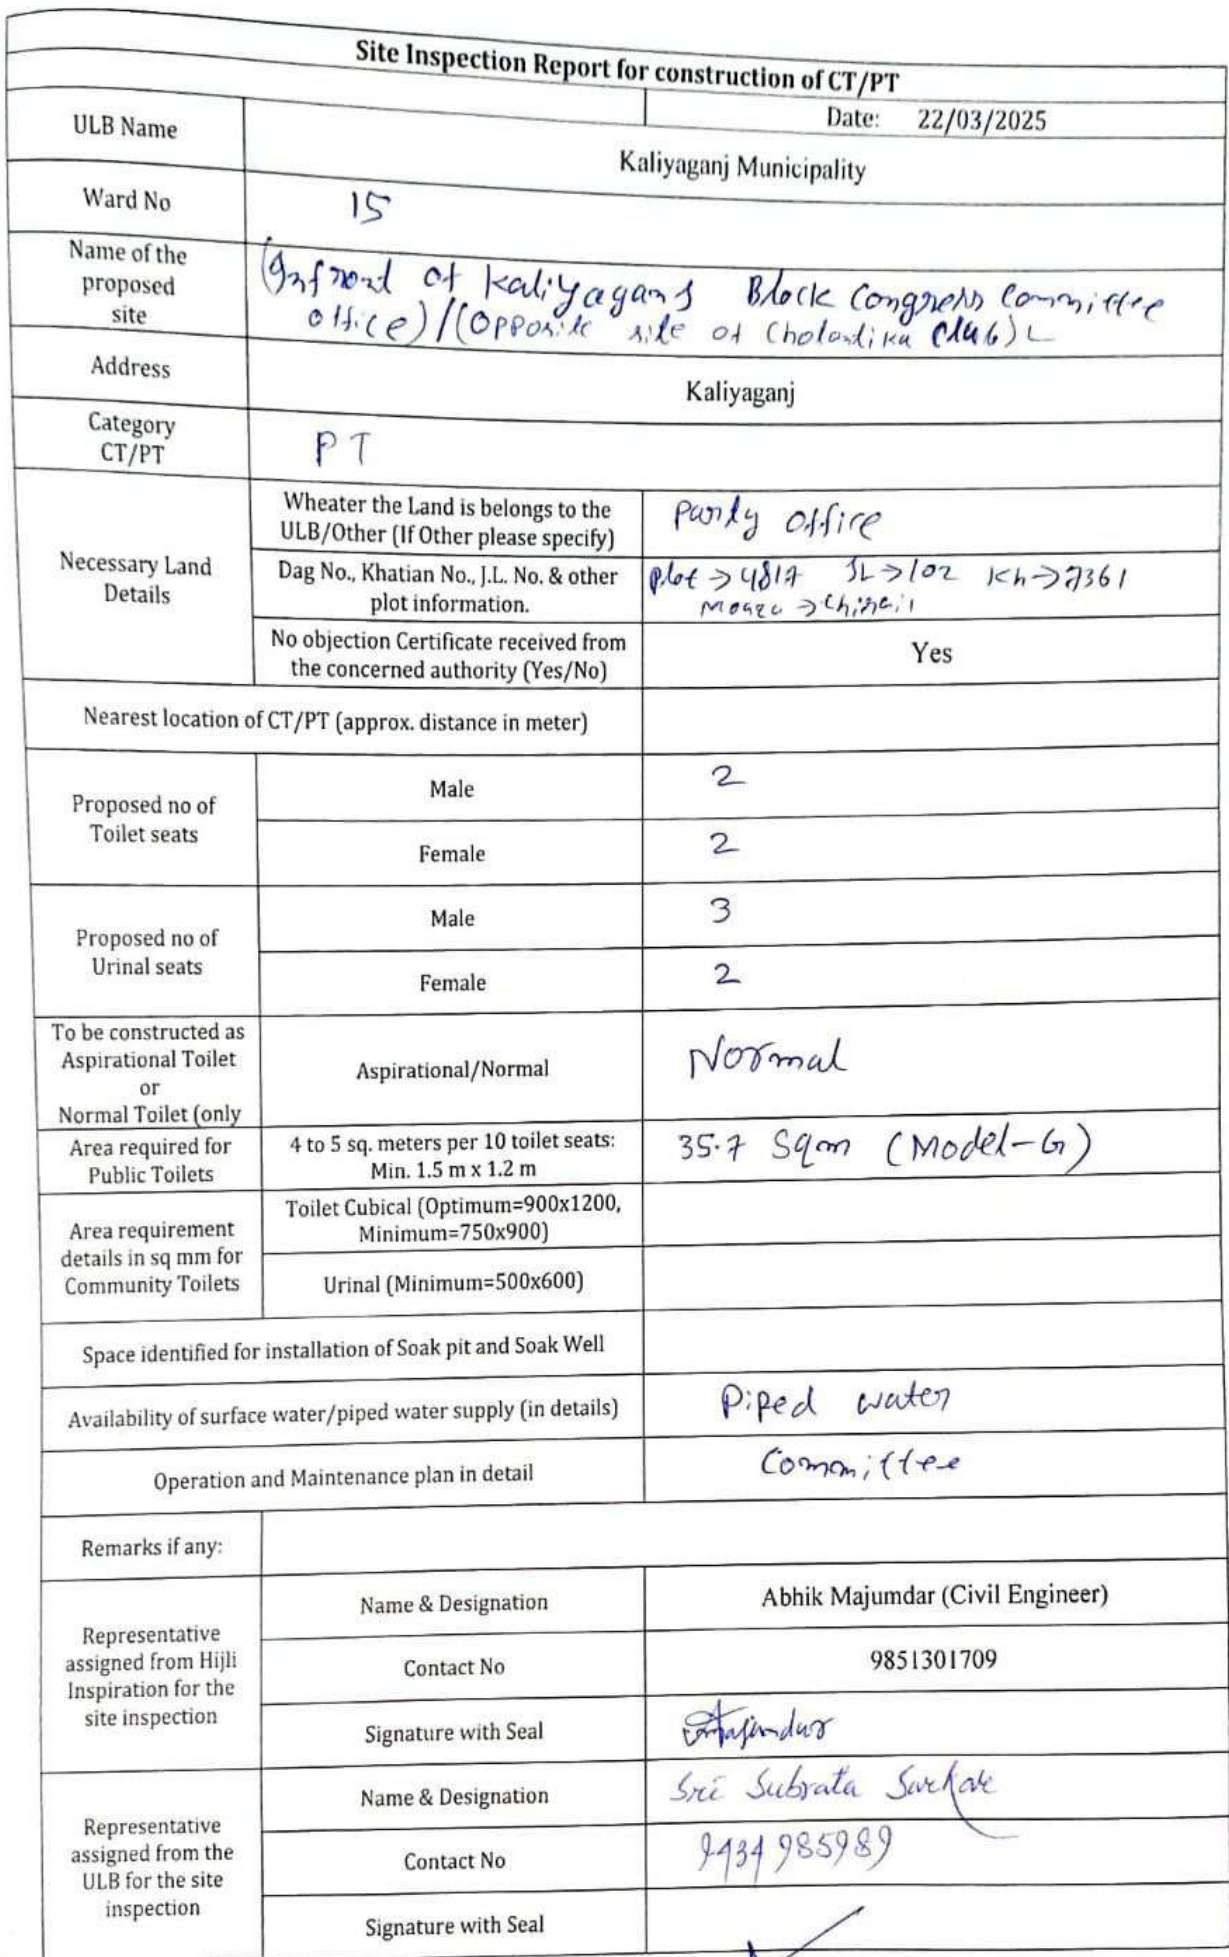 Site Inspection Report for construction of CT/PT
Date: 22/03/2025
ULB Name
Kaliyaganj Municipality
Ward No
15
Name of the
proposed
site
(Infront of Kaliyaganj Block Congress Committee
office)/(Opposite side of Cholontika Club)
Address
Kaliyaganj
Category
CT/PT
PT
Necessary Land
Details
Wheater the Land is belongs to the
ULB/Other (If Other please specify)
Party office
Dag No., Khatian No., J.L. No. & other
plot information.
Plot → 4817 JL → 102 Kh → 7361
Mouza →
No objection Certificate received from
the concerned authority (Yes/No)
Yes
Nearest location of CT/PT (approx. distance in meter)
Proposed no of
Toilet seats
Male
2
Female
2
Proposed no of
Urinal seats
Male
3
Female
2
To be constructed as
Aspirational Toilet
or
Normal Toilet (only
Aspirational/Normal
Normal
Area required for
Public Toilets
4 to 5 sq. meters per 10 toilet seats:
Min. 1.5 m x 1.2 m
35.7 Sqm (Model-G)
Area requirement
details in sq mm for
Community Toilets
Toilet Cubical (Optimum=900x1200,
Minimum=750x900)
Urinal (Minimum=500x600)
Space identified for installation of Soak pit and Soak Well
Availability of surface water/piped water supply (in details)
Piped water
Operation and Maintenance plan in detail
Committee
Remarks if any:
Representative
assigned from Hijli
Inspiration for the
site inspection
Name & Designation
Abhik Majumdar (Civil Engineer)
Contact No
9851301709
Signature with Seal
AMajumdar
Representative
assigned from the
ULB for the site
inspection
Name & Designation
Sri Subrata Sarkar
Contact No
9434985989
Signature with Seal